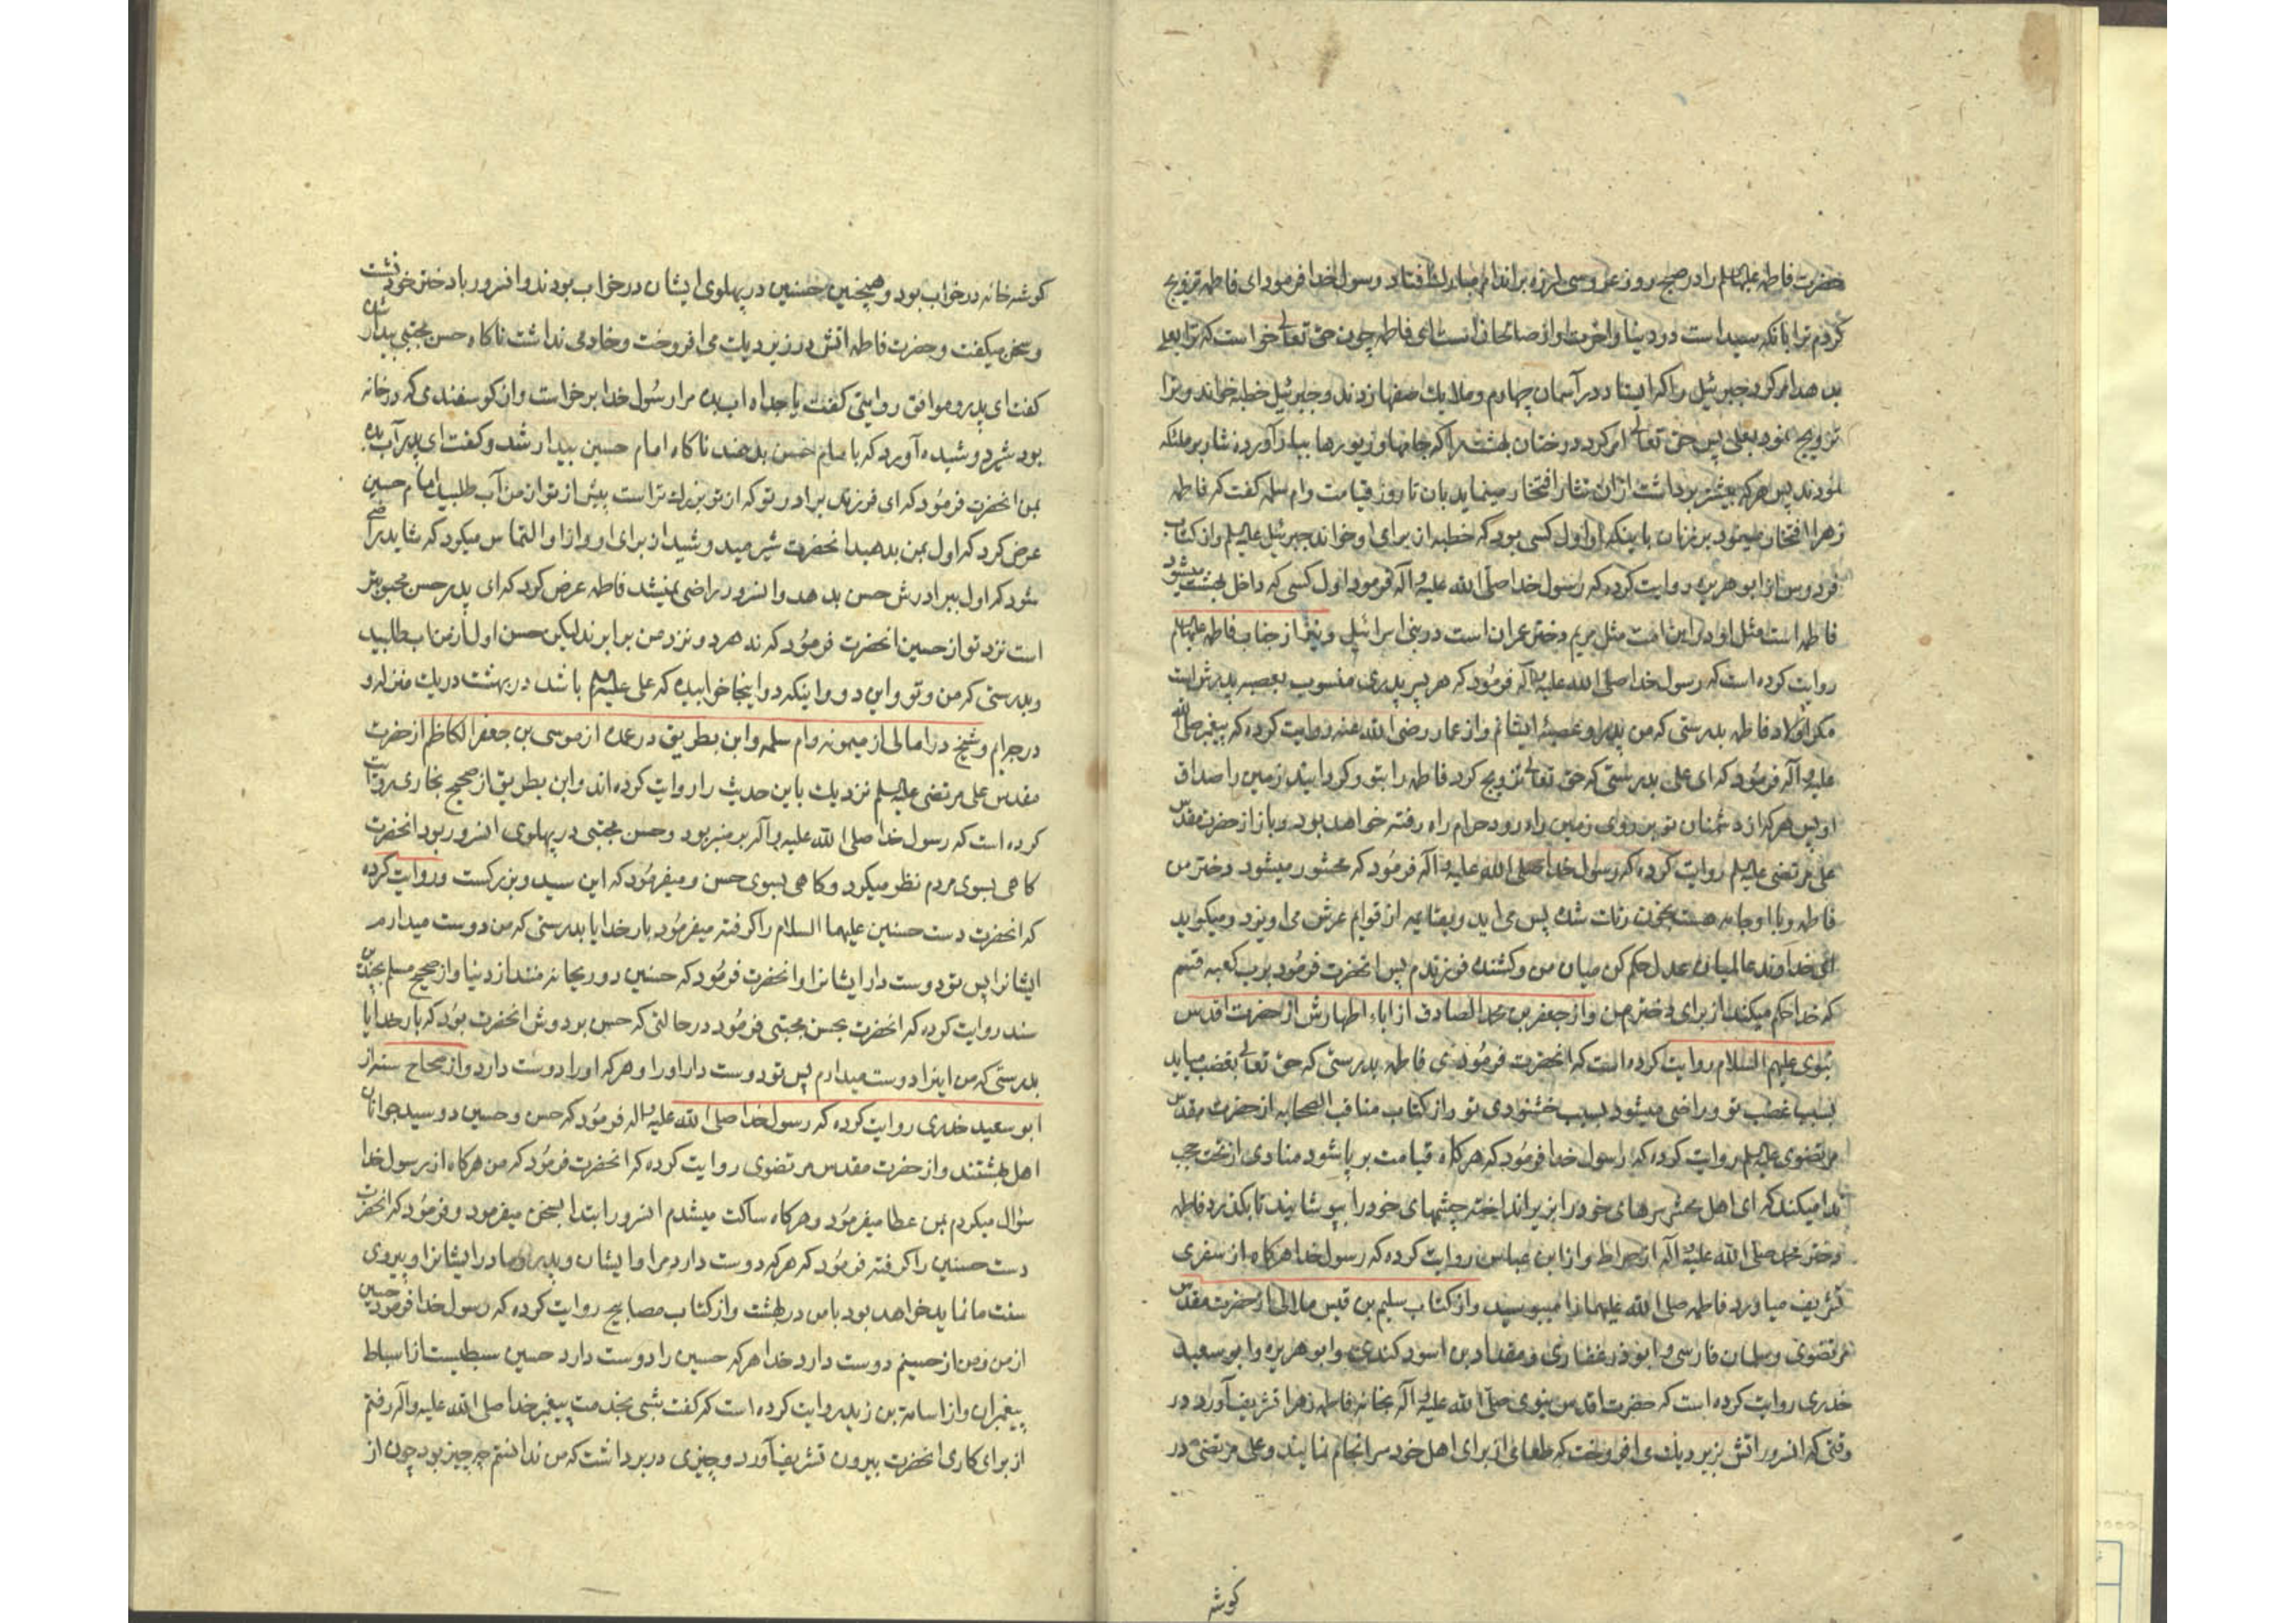 حضرت فاطمه علیها السلم را در صبح روز عروسی لرزه بر اندام مبارک افتاد و رسول خدا فرمود ای فاطمه تزویج
کردم ترا بانکه سید است در دنیا و اخرت او از صالحانست ای فاطمه چون حق تعالی خواست که ترا بعلی
بدهد امر کرد جبرئیل را که ایستاد در آسمان چهارم و ملایک صفها زدند و جبرئیل خطبه خواند و ترا
تزویج نمود بعلی پس حق تعالی امر کرد درختان بهشت را که جامها و زیورها ببار آورده نثار بر ملئکه
نمودند پس هر که بیشتر برداشت از ان نثار افتخار مینماید بان تا روز قیامت و ام سلمه گفت که فاطمه
زهرا افتخار مینمود بر زنان باینکه او اول کسی بود که خطبه از برای او خواند جبرئیل علیه السلم و از کتاب
فردوس از ابو هریره روایت کرده که رسول خدا صلی الله علیه و آله فرمود اول کسی که داخل بهشت میشود
فاطمه است مثل او در این امت مثل مریم دختر عمران است در بنی اسرائیل و نیز از جناب فاطمه علیها السلم
روایت کرده است که رسول خدا صلی الله علیه و آله فرمود که هر پسر پدری منسوب بعصبه پدرش است
مکر اولاد فاطمه بدرستی که من پدر و عصبه ایشانم و از عمار رضی الله عنه روایت کرده که پیغمبر صلی الله
علیه و آله فرمود که ای علی بدرستی که حق تعالی تزویج کرد فاطمه را بتو و کردانید زمین را صداق
او پس هر که از دشمنان تو بر روی زمین راه رود حرام راه رفته خواهد بود و باز از حضرت مقدس
علی مرتضی علیه السلم روایت کرده که رسول خدا صلی الله علیه و آله فرمود که محشور میشود دختر من
فاطمه و با او جامه هست بخون رنک شده پس می اید و بقایمه از قوایم عرش می اویزد و میکوید
ای خداوند عالمیان عدل حکم کن میان من و کشنده فرزندم پس انحضرت فرمود برب کعبه قسم
که خدا حکم میکند از برای دختر من و از جعفر بن محمد الصادق از اباء اطهارش از حضرت اقدس
نبوی علیهم السلام روایت کرده است که انحضرت فرمود ی فاطمه بدرستی که حق تعالی بغضب میاید
بسبب غضب تو و راضی میشود بسبب خشنودی تو و از کتاب مناقب الصحابه از حضرت مقدس
مرتضوی علیه السلم روایت کرده که رسول خدا فرمود که هر کاه قیامت بر پا شود منادی از تحت حجب
ندا میکند که ای اهل محشر سرهای خود را بزیر انداخته چشمهای خود را بپوشانید تا بکذرد فاطمه
دختر محمد صلی الله علیه و آله از صراط و از ابن عباس روایت کرده که رسول خدا هر کاه از سفری
تشریف میاورد فاطمه صلی الله علیهما را میبوسید و از کتاب سلیم بن قیس هلالی از حضرت مقدس
مرتضوی و سلمان فارسی و ابو ذر غفاری و مقداد بن اسود کندی و ابو هریره و ابو سعید
خدری روایت کرده است که حضرت اقدس نبوی صلی الله علیه و آله بخانه فاطمه زهرا تشریف آورد در
وقتی که انسرور اتش بزیر دیک می افروخت که طعامی از برای اهل خود سرانجام نماید و علی مرتضی در
کوشه
کوشه خانه در خواب بود و همچنین حسنین در پهلوی ایشان در خواب بودند و انسرور با دختر خود نشست
و سخن میکفت و حضرت فاطمه اتش در زیر دیک می افروخت و خادمی نداشت ناکاه حسن مجتبی بیدار شده
کفت ای پدر و موافق روایتی کفت یا جداه اب بده مرا رسول خدا برخواست و از کوسفندی که در خانه
بود شیر دوشیده آورد که بامام حسن بدهند ناکاه امام حسین بیدار شد و کفت ای پدر آب بده
بمن انحضرت فرمود که ای فرزند برادر تو که از تو بزرک تر است پیش از تو از من آب طلبید امام حسین
عرض کرد که اول بمن بدهید انحضرت شیر میدوشید از برای او و از او التماس میکرد که شاید راضی
شود که اول ببرادرش حسن بدهد و انسرور راضی نمیشد فاطمه عرض کرد که ای پدر حسن محبوبتر
است نزد تو از حسین انحضرت فرمود که نه هر دو نزد من برابرند لیکن حسن اول از من اب طلبید
و بدرستی که من و تو و این دو و اینکه در اینجا خوابیده که علی علیه السلم باشد در بهشت در یک منزله و
درجه ایم و شیخ در امالی از میمونه و ام سلمه و ابن بطریق در عمده از موسی بن جعفر الکاظم از حضرت
مقدس علی مرتضی علیه السلم نزدیک باین حدیث را روایت کرده اند و ابن بطریق از صحیح بخاری روایت
کرده است که رسول خدا صلی الله علیه و آله بر منبر بود و حسن مجتبی در پهلوی انسرور بود انحضرت
کاهی بسوی مردم نظر میکرد و کاهی بسوی حسن و میفرمود که این سید و بزرکست و روایت کرده
که انحضرت دست حسنین علیهما السلام را کرفته میفرمود بار خدایا بدرستی که من دوست میدارم
ایشانرا پس تو دوست دار ایشانرا و انحضرت فرمود که حسنین دو ریحانه منند از دنیا و از صحیح مسلم بچندین
سند روایت کرده که انحضرت بحسن مجتبی فرمود در حالتی که حسن بر دوش انحضرت بود که بار خدایا
بدرستی که من اینرا دوست میدارم پس تو دوست دار او را و هر که او را دوست دارد و از صحاح سته از
ابو سعید خدری روایت کرده که رسول خدا صلی الله علیه و اله فرمود که حسن و حسین دو سید جوانان
اهل بهشتند و از حضرت مقدس مرتضوی روایت کرده که انحضرت فرمود که من هر کاه از رسول خدا
سؤال میکردم بمن عطا میفرمود و هر کاه ساکت میشدم انسرور ابتدا بسخن میفرمود و فرمود که انحضرت
دست حسنین را کرفته فرمود که هر که دوست دارد مرا و ایشان و پدر و مادر ایشانرا و پیروی
سنت ما نماید خواهد بود با من در بهشت و از کتاب مصابیح روایت کرده که رسول خدا فرمود حسین
از من و من از حسینم دوست دارد خدا هر که حسین را دوست دارد حسین سبطیست از اسباط
پیغمبران و از اسامة بن زید روایت کرده است که کفت شبی بخدمت پیغمبر خدا صلی الله علیه و آله رفتم
از برای کاری انحضرت بیرون تشریف آورد و چیزی در بر داشت که من ندانستم چه چیز بود چون از